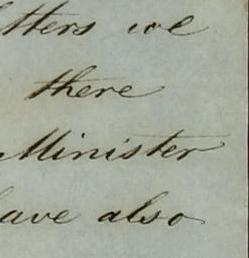 letters we
there
Minister
have also